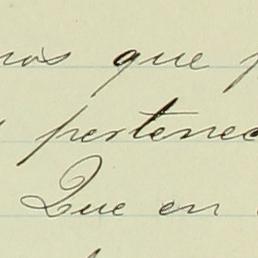 que
pertenec
Que en